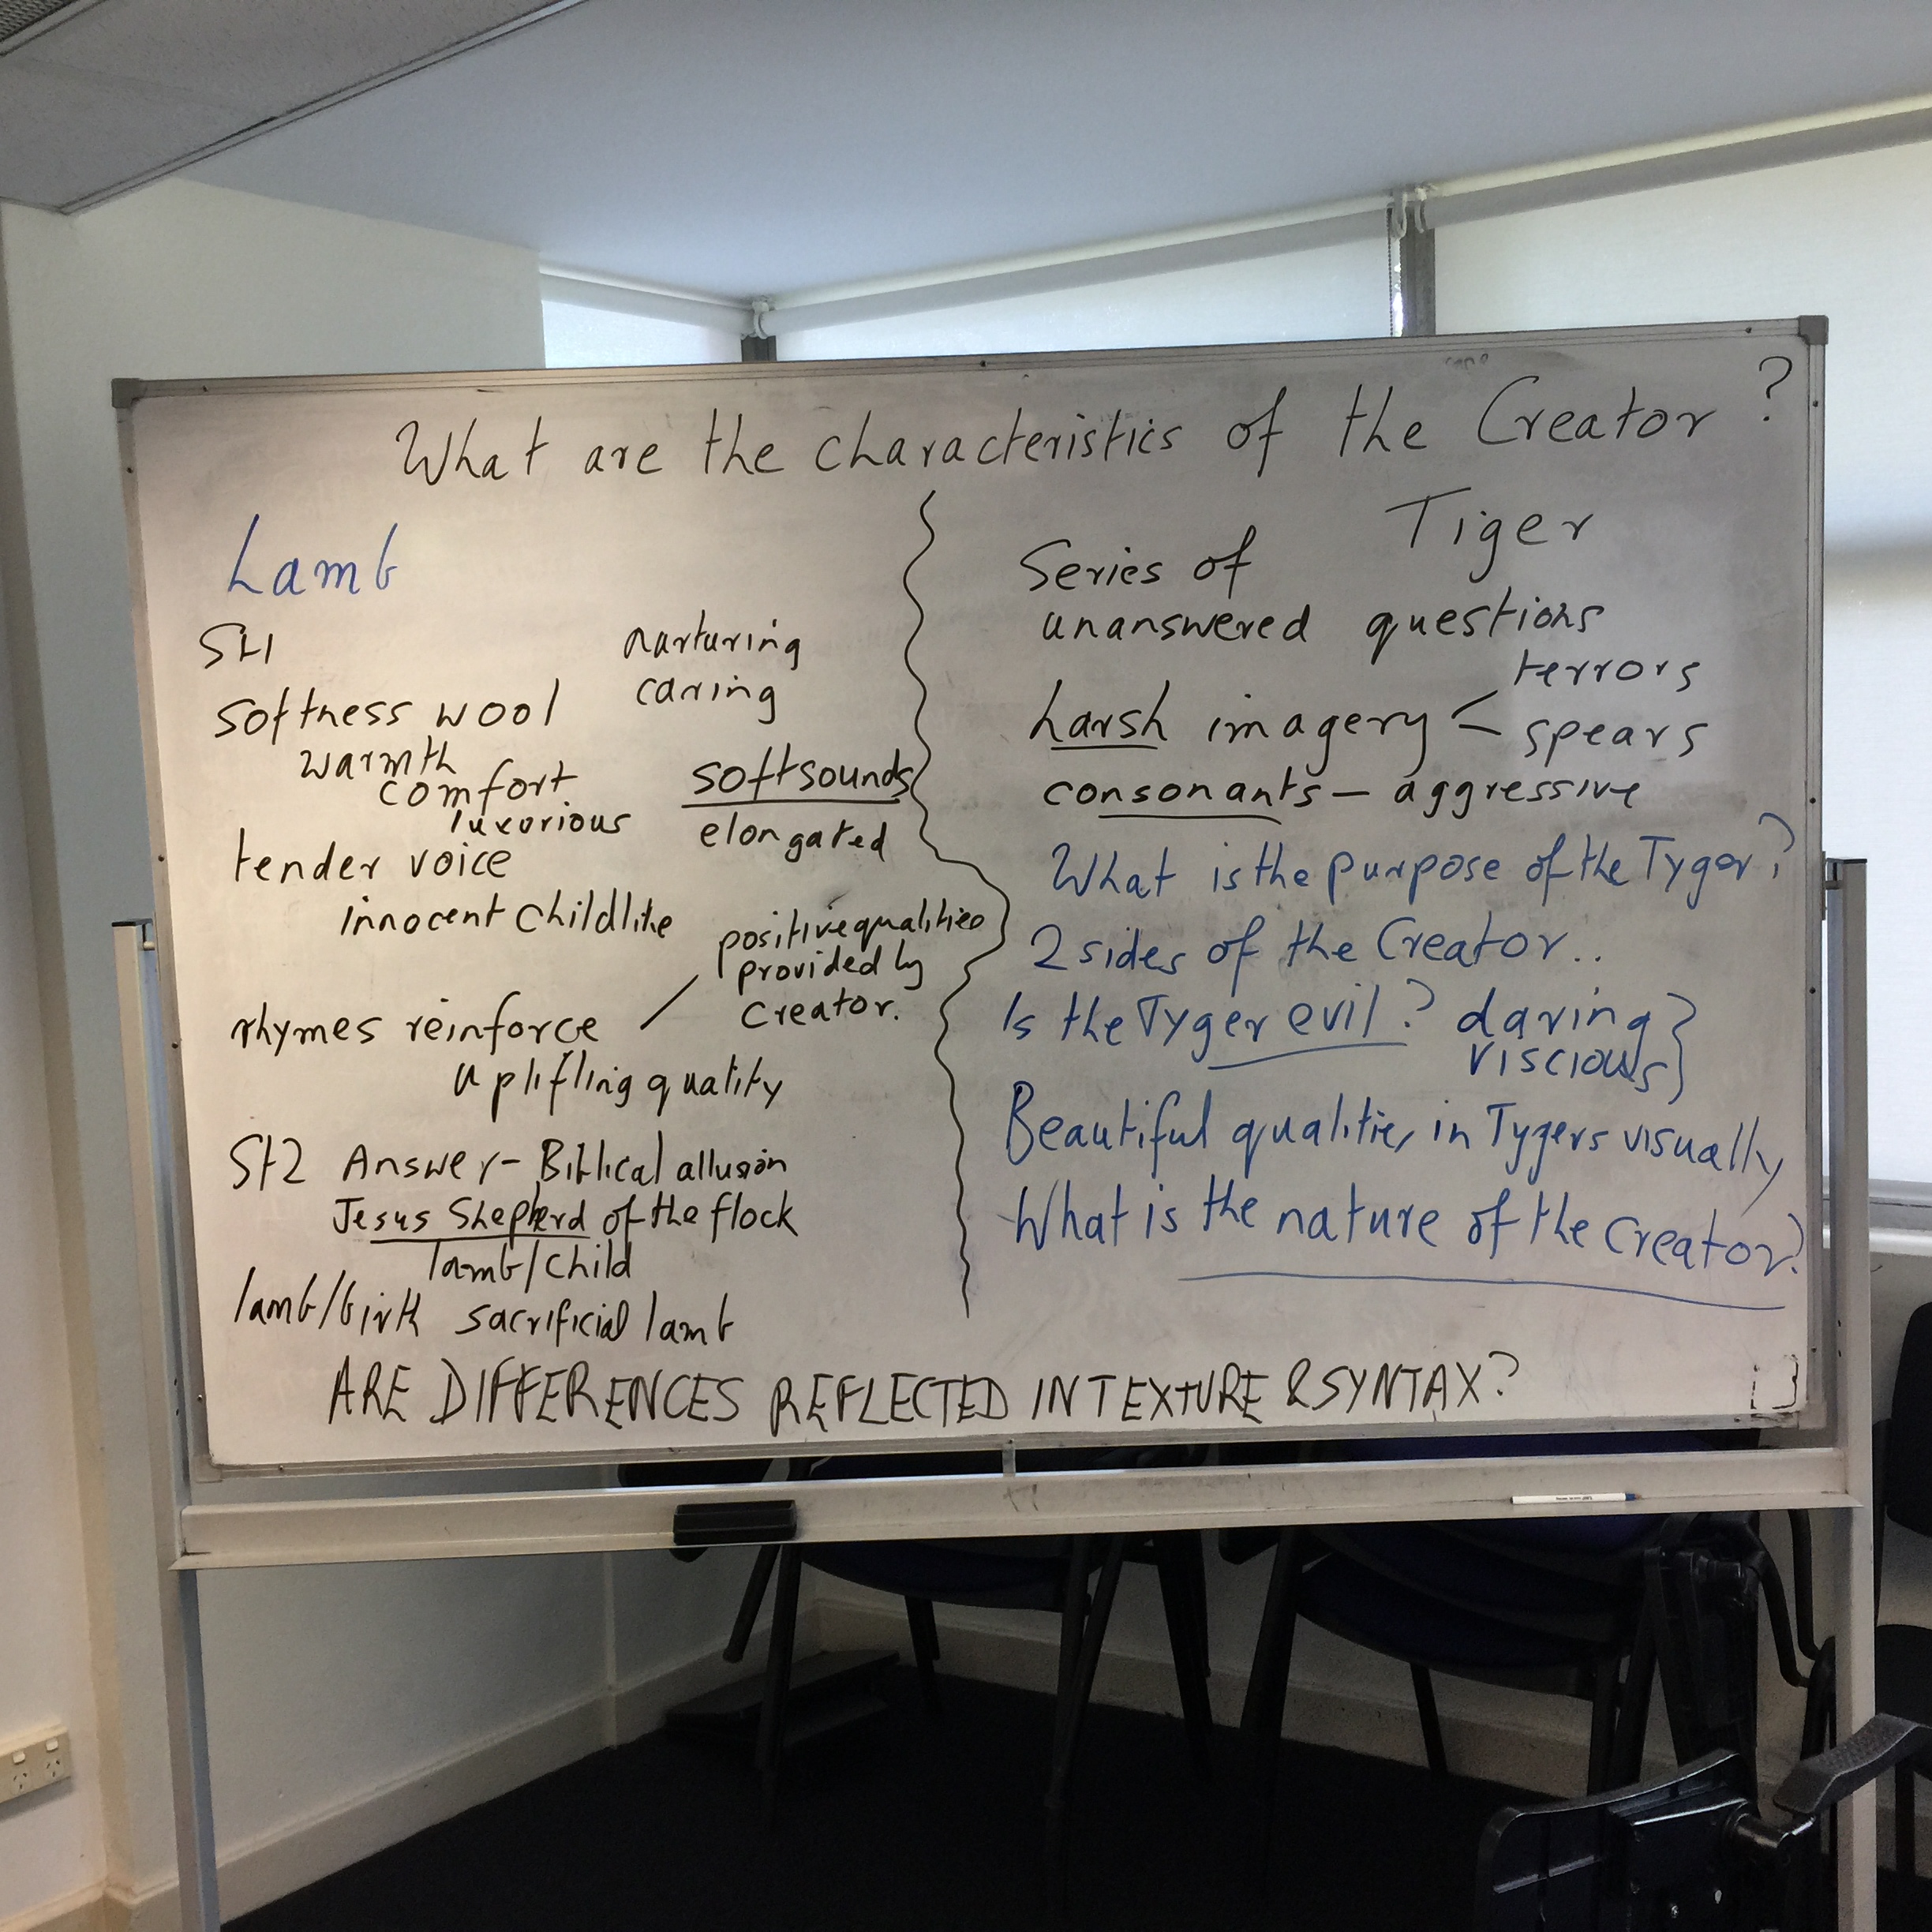 What are the characteristics of the Creator?
Lamb
St1
nurturing
caring
softness wool
warmth
comfort
luxurious
soft sounds
elongated
tender voice
innocent childlike
positive qualities
provided by
Creator.
rhymes reinforce
uplifting quality
St2 Answer - Biblical allusion
Jesus Shepherd of the flock
lamb/child
lamb/birth sacrificial lamb
Tiger
Series of
unanswered questions
harsh imagery < terrors
spears
consonants - aggressive
What is the purpose of the Tyger?
2 sides of the Creator..
Is the Tyger evil? daring }
viscious
Beautiful qualities in Tygers visually
What is the nature of the Creator?
ARE DIFFERENCES REFLECTED IN TEXTURE & SYNTAX?